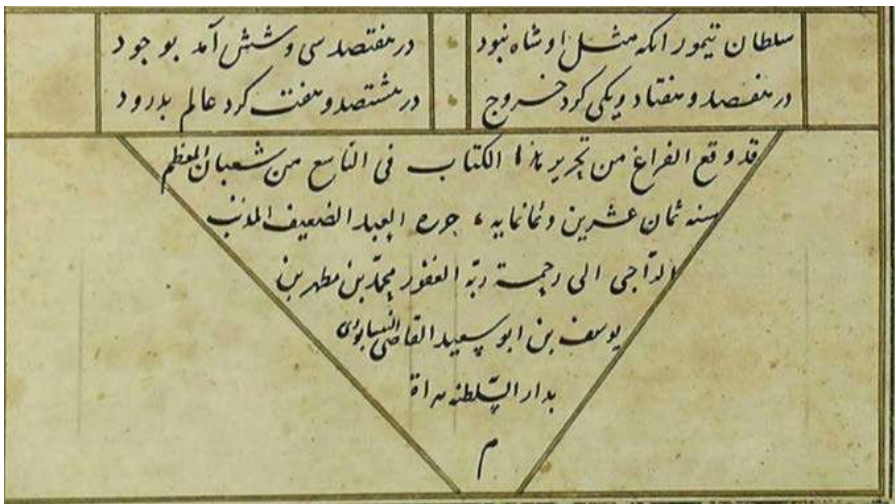 سلطان تیمور انکه مثل او شاه نبود
در هفتصد سی و شش آمد بوجود
در هفصد و هفتاد ویکی کرد خروج
در هشتصد و هفت کرد عالم بدرود
قد وقع الفراغ من تحریر هذا الکتاب فی التاسع من شعبان المعظم
سنه ثمان عشرین وثمانمایه، حرره العبد الضعیف المذنب
الراجی الی رحمة ربّه الغفور محمد بن مطهر بن
یوسف بن ابو سعید القاضی النیسابوری
بدار السّلطنه هراة
م